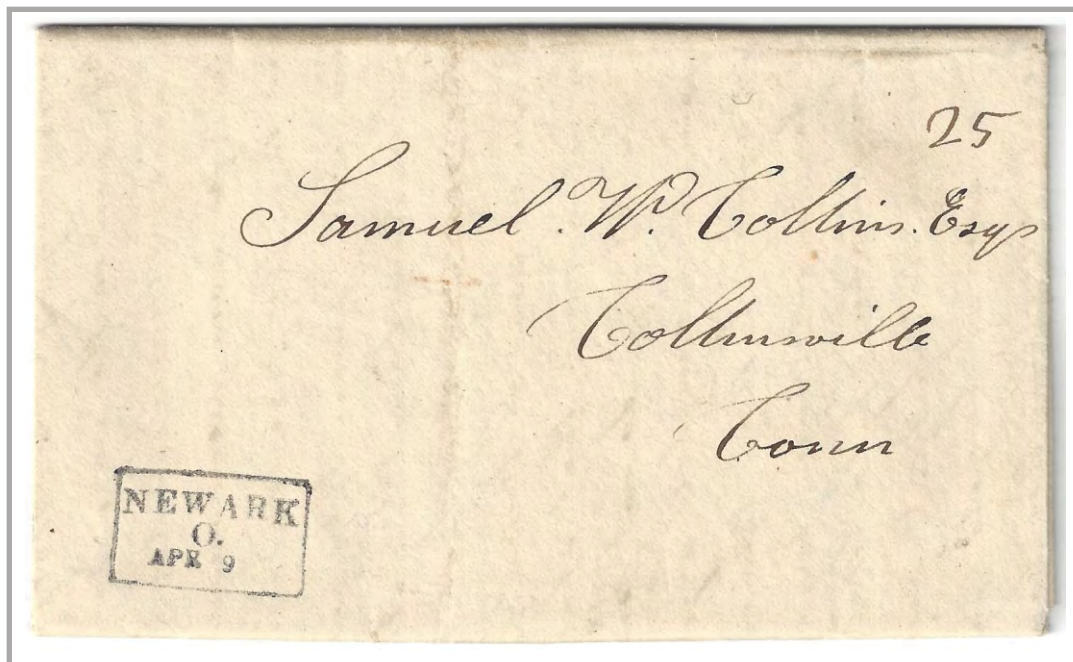 25
Samuel. W. Collins. Esqr
Collinsville
Conn
NEWARK
O.
APR 9